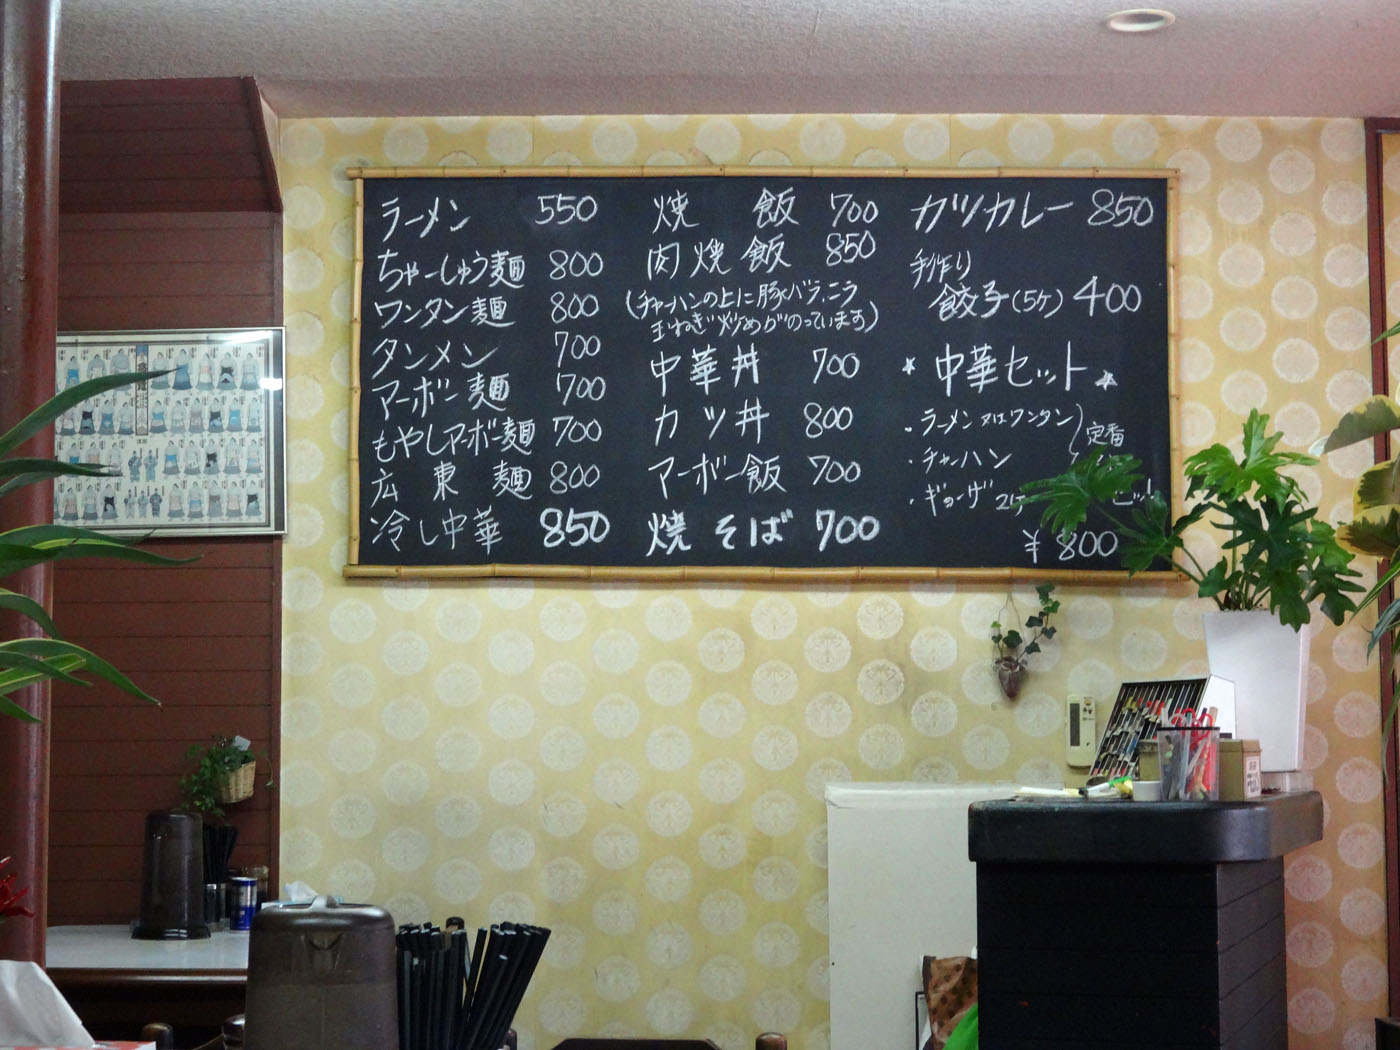 ラーメン 550
ちゃーしゅう麺 800
ワンタン麺 800
タンメン 700
マーボー麺 700
もやしマーボー麺 700
広東麺 800
冷し中華 850
焼飯 700
肉焼飯 850
(チャーハンの上に豚バラ、ニラ
玉ねぎ炒めがのっています)
中華丼 700
カツ丼 800
マーボー飯 700
焼そば 700
カツカレー 850
手作り
餃子(5ケ) 400
* 中華セット *
・ラーメン又はワンタン
定番
・チャーハン
・ギョーザ
¥800